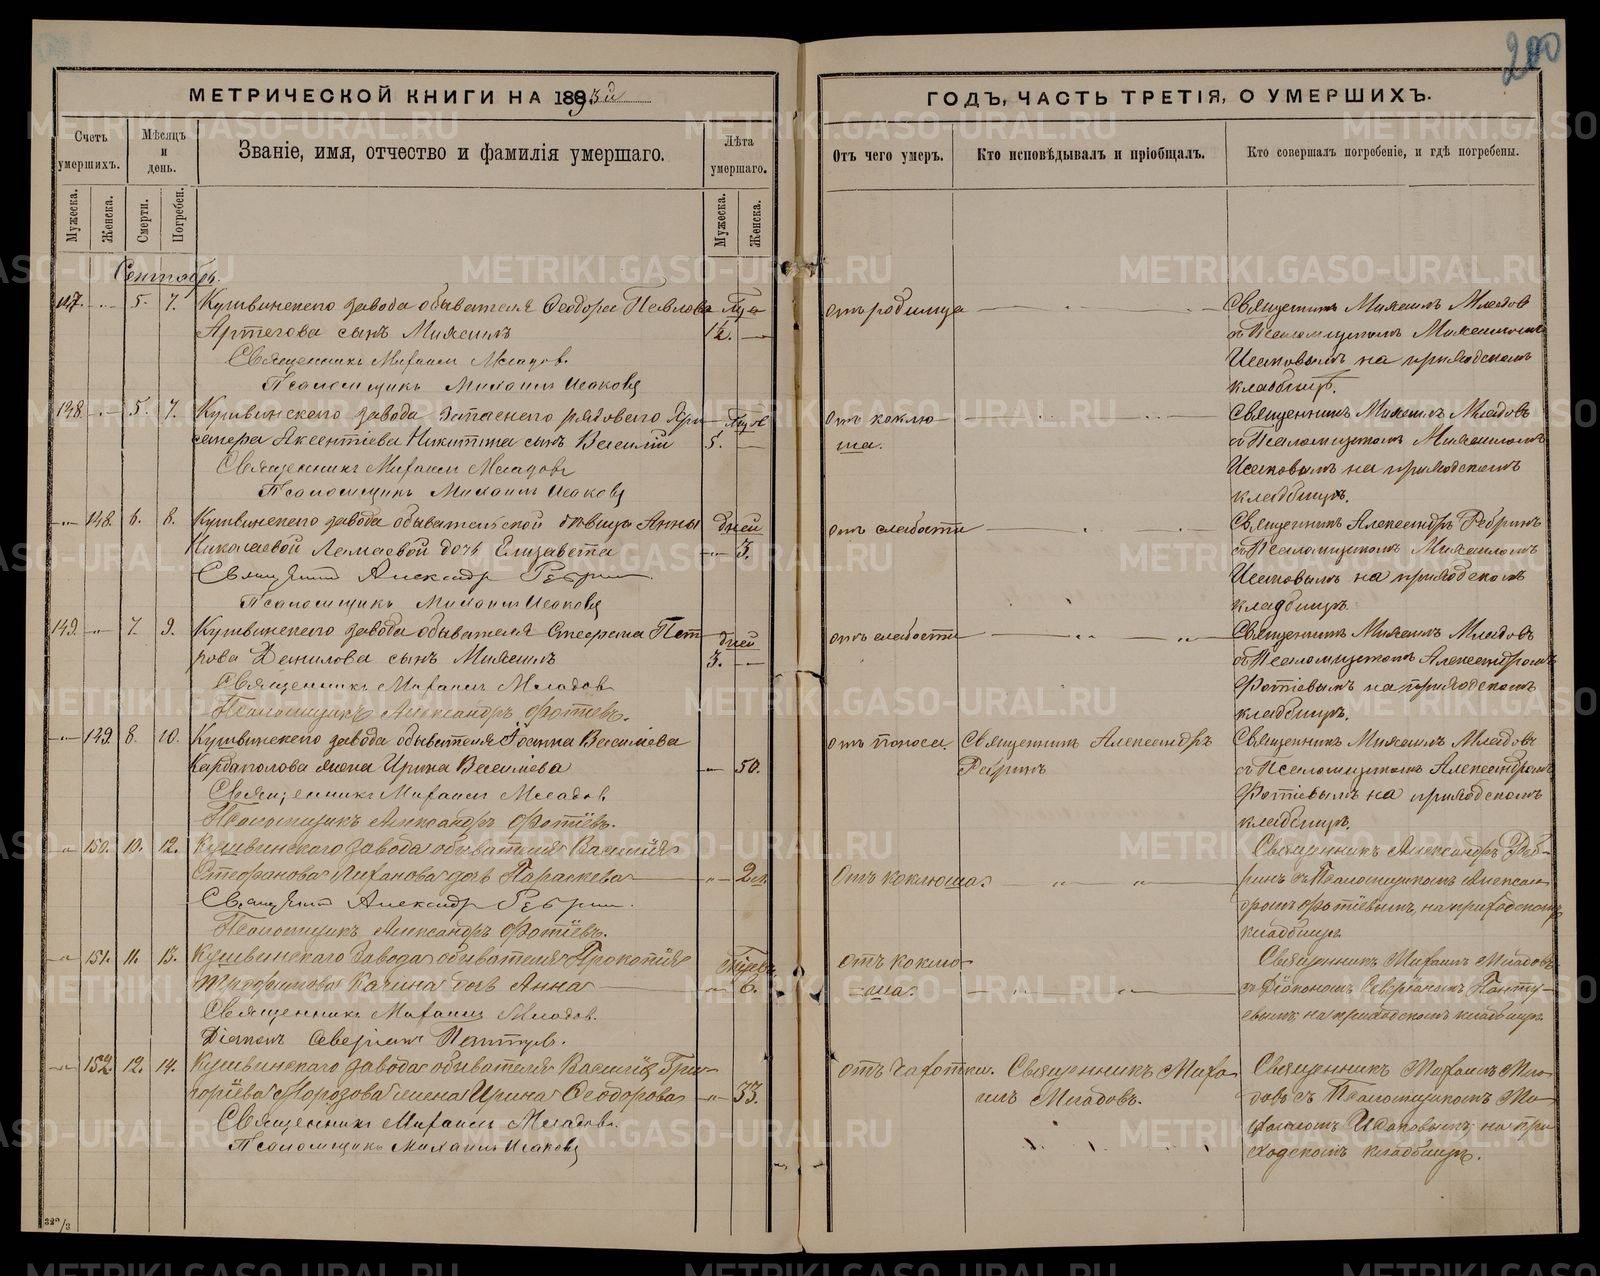 200
МЕТРИЧЕСКОЙ КНИГИ НА 1893й
ГОДЪ, ЧАСТЬ ТРЕТІЯ, О УМЕРШИХЪ.
Счетъ умершихъ.
Мѣсяцъ и день.
Званіе, имя, отчество и фамилія умершаго.
Лѣта умершаго.
Отъ чего умеръ.
Кто исповѣдывалъ и пріобщалъ.
Кто совершалъ погребеніе, и гдѣ погребены.
Мужеска.
Женска.
Смерти.
Погребен.
Мужеска.
Женска.
Сентябрь.
147. 5. 7. Кушвинскаго завода обывателя Ѳеодора Павлова
Артегова сынъ Михаилъ 1½.
Священникъ Михаилъ Младовъ
Псаломщикъ Михаилъ Исаковъ
отъ родимца
Священникъ Михаилъ Младов
съ Псаломщикомъ Михаиломъ
Исаковымъ на приходскомъ
кладбищѣ.
148. 5. 7. Кушвинскаго завода запаснаго рядоваго
Аксентіева Никитина сынъ Василій 5.
Священникъ Михаилъ Младовъ
Псаломщикъ Михаилъ Исаковъ
отъ коклю-
ша.
Священникъ Михаилъ Младовъ
съ Псаломщикомъ Михаиломъ
Исаковымъ на приходскомъ
кладбищѣ.
148. 6. 8. Кушвинскаго завода обывательской дѣвицы Анны дней
Николаевой дочь Елизавета 3.
Священникъ Александръ Ребринъ
Псаломщикъ Михаилъ Исаковъ
отъ слабости
Священникъ Александръ Ребринъ
съ Псаломщикомъ Михаиломъ
Исаковымъ на приходскомъ
кладбищѣ.
149. 7. 9. Кушвинскаго завода обывателя Стефана Пет-
рова Данилова сынъ Михаилъ дней 3.
Священникъ Михаилъ Младовъ
Псаломщикъ Александръ Фотіевъ.
отъ слабости
Священникъ Михаилъ Младовъ
съ Псаломщикомъ Александромъ
Фотіевымъ на приходскомъ
кладбищѣ.
149. 8. 10. Кушвинскаго завода обывателя Іоанна Василіева
Кардаполова жена Ирина Василіева 50.
Священникъ Михаилъ Младов
Псаломщикъ Александръ Фотіевъ.
отъ поноса
Священникъ Александръ
Ребринъ
Священникъ Михаилъ Младовъ
съ Псаломщикомъ Александромъ
Фотіевымъ на приходскомъ
кладбищѣ.
150. 10. 12. Кушвинскаго завода обывателя Василія
Стефанова дочь Параскева 2
Священникъ Александръ Ребринъ.
Псаломщикъ Александръ Фотіевъ.
Отъ коклюша.
Священникъ Александръ Реб-
ринъ съ Псаломщикомъ Алексан-
дромъ Фотіевымъ, на приходскомъ
кладбищѣ.
151. 11. 13. Кушвинскаго завода обывателя Прокопія
Трофимова Качина дочь Анна 6.
Священникъ Михаилъ Младов.
Діаконъ Северіанъ
отъ коклю-
ша.
Священникъ Михаилъ Младовъ
съ Діакономъ Северіаномъ
на приходскомъ кладбищѣ.
152. 12. 14. Кушвинскаго завода обывателя Василія Гри-
горіева Морозова жена Ирина Ѳеодорова 33.
Священникъ Михаилъ Младовъ.
Псаломщикъ Михаилъ Исаковъ
отъ чахотки.
Священникъ Миха-
илъ Младовъ.
Священникъ Михаилъ Мла-
довъ съ Псаломщикомъ Ми-
хаиломъ Исаковымъ, на при-
ходскомъ кладбищѣ.
METRIKI.GASO-URAL.RU